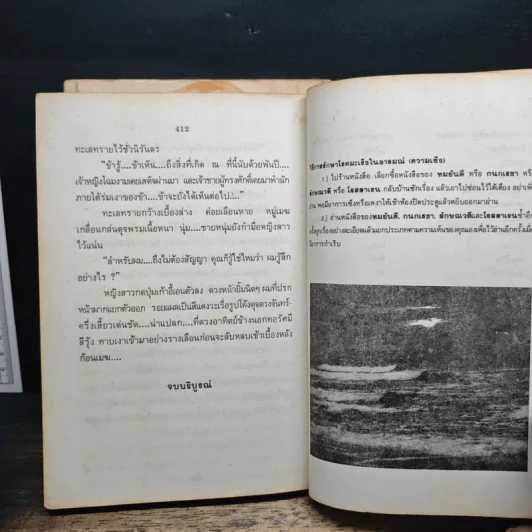 412
ทะเลทรายไว้ชั่วนิรันดร
“ข้ารู้....ข้าเห็น....ถึงสิ่งที่เกิด ณ ที่นี้นับด้วยพันปี....
เจ้าหญิงโฉมงามเคยเสด็จผ่านมา และเจ้าชายผู้ทรงศักดิ์เคยมาพำนัก
ภายใต้ร่มเงาของข้า....ข้าจะยังได้เห็นต่อไป....”
ทะเลทรายกว้างเบื้องล่าง ค่อยเลือนหาย หมู่เมฆ
เกลื่อนกล่นดุจพรมเนื้อหนา นุ่ม....ชายหนุ่มยังกำมือหญิงสาว
ไว้แน่น
“สำหรับผม....ถึงไม่ต้องสัญญา คุณก็รู้ใช่ไหมว่า ผมรู้สึก
อย่างไร ?”
หญิงสาวกดปุ่มเก้าอี้เอนตัวลง ดวงหน้ายิ้มนิดๆ ผมที่ปรก
หน้าผากแยกตัวออก รอยแผลเป็นสีแดงระเรื่อรูปโค้งดุจดวงจันทร์-
ครึ่งเสี้ยวเด่นชัด....น่าแปลก....ที่ดวงอาทิตย์ข้างนอกทอรัศมี
สีรุ้ง ทาบเงาเข้ามาอย่างรางเลือนก่อนจะลับหลบเข้าเบื้องหลัง
ก้อนเมฆ....
จบบริบูรณ์
วิธีการรักษาโรคมะเร็งในอารมณ์ (ความเซ็ง)
1) ไปร้านหนังสือ เลือกซื้อหนังสือของ ทมยันตี หรือ กนกเรขา หรือ
ลักษณวดี หรือ โรสลาเรน กลับบ้านซักเรื่อง แล้วเอาไปซ่อนไว้ใต้เตียง อย่าเพิ่
พอมีอาการเซ็งหรือเหงาให้เข้าห้องปิดประตูแล้วหยิบออกมาอ่าน
2) อ่านหนังสือของทมยันตี, กนกเรขา, ลักษณวดีและโรสลาเรนซ้ำอี
ทุกเรื่องอย่างละเอียดแล้วแยกประเภทตามความเห็นของคุณเองเพื่อไว้อ่านอีกครั้งเมื่
อาการกำเริบ